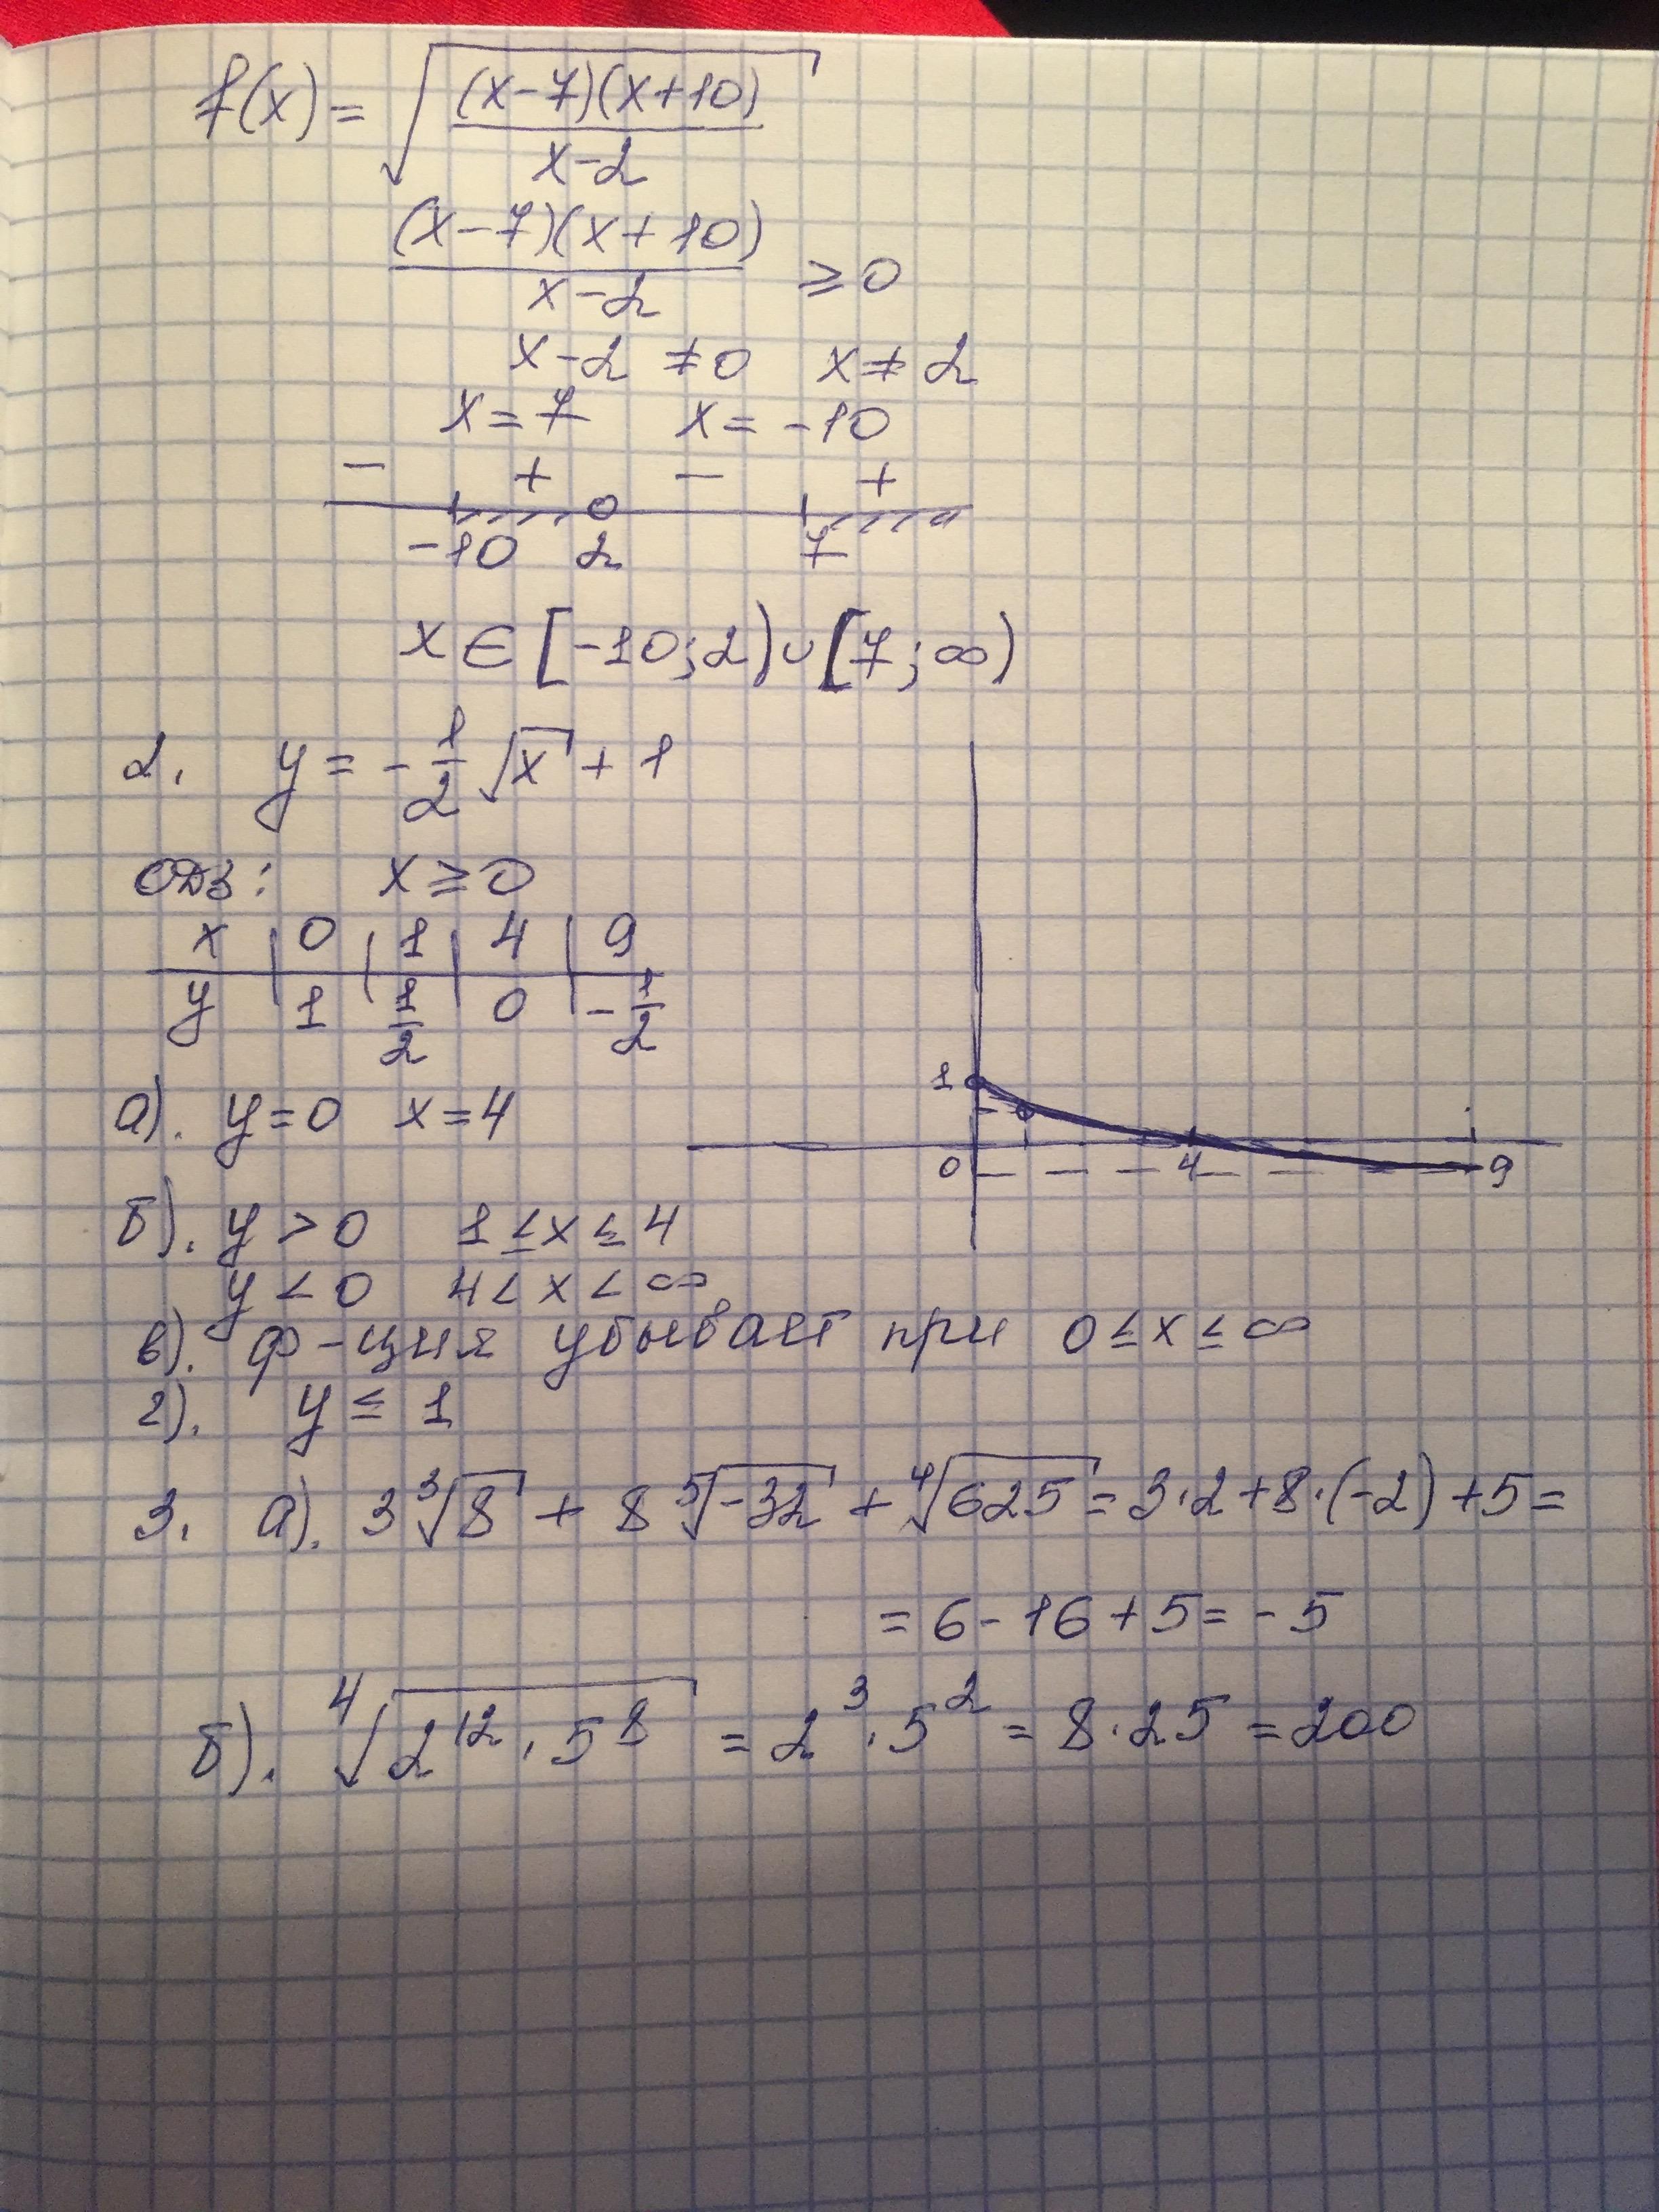 f(x) = √((x-7)(x+10)/(x-2))
(x-7)(x+10)/(x-2) ≥ 0
x-2 ≠ 0 x ≠ 2
x = 7 x = -10
- + - +
-10 2 7
x ∈ [-10; 2) ∪ [7; ∞)
2. y = -1/2 √x + 1
ОДЗ: x ≥ 0
x | 0 | 1 | 4 | 9
y | 1 | 1/2 | 0 | -1/2
1
0 4 9
а). y = 0 x = 4
б). y > 0 1 ≤ x ≤ 4
y < 0 4 < x < ∞
в). ф-ция убывает при 0 ≤ x ≤ ∞
г). y ≤ 1
3. а). 3∛8 + 8⁵√-32 + ⁴√625 = 3·2 + 8·(-2) + 5 =
= 6 - 16 + 5 = -5
б). ⁴√(2¹²·5⁸) = 2³·5² = 8·25 = 200